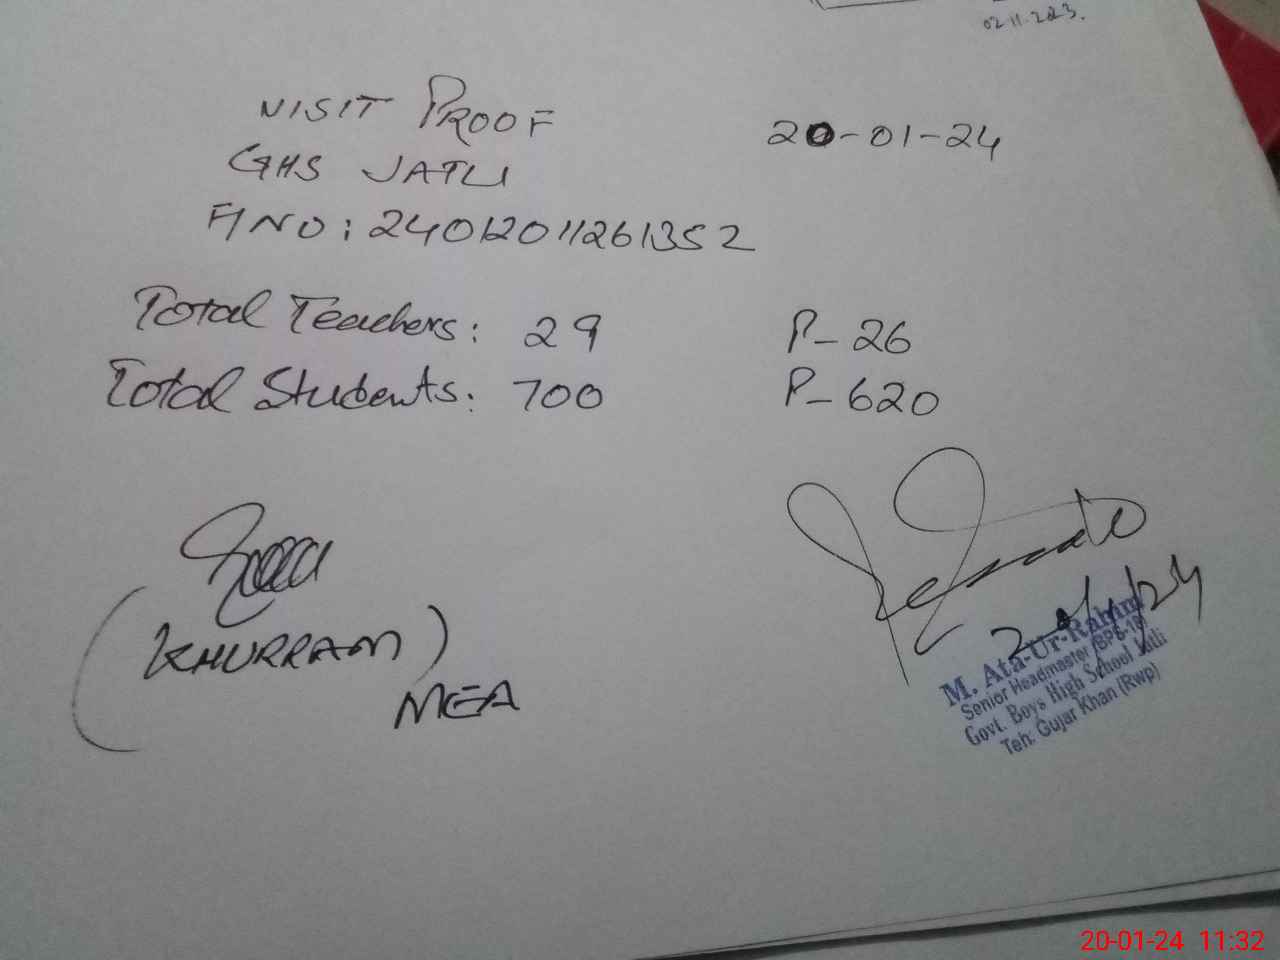 02.11.223.
VISIT PROOF
20-01-24
GHS JATLI
F/NO: 24012011261352
Total Teachers: 29 P-26
Total Students: 700 P-620
(KHURRAM)
MEA
20/1/24
M. Ata-Ur-Rahim
Senior Headmaster (BPS-18)
Govt. Boys High School Jatli
Teh: Gujar Khan (Rwp)
20-01-24 11:32